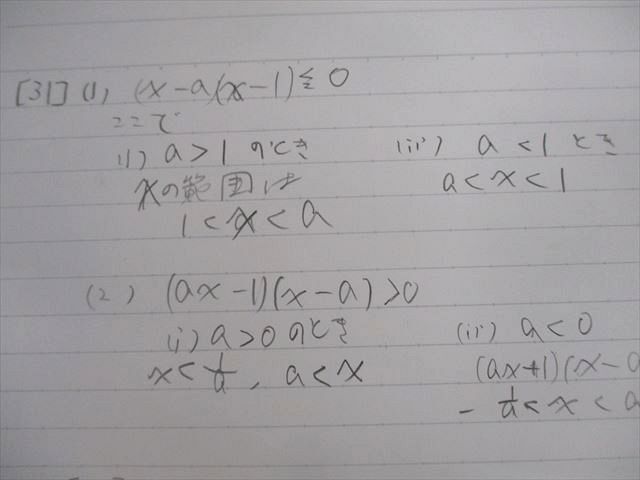 [31] (1) (x-a)(x-1)≦0
ここで
(i) a>1 のとき
xの範囲は
1<x<a
(ii) a<1 とき
a<x<1
(2) (ax-1)(x-a)>0
(i) a>0 のとき
x<1/a , a<x
(ii) a<0
(ax+1)(x-a
-1/a<x<a